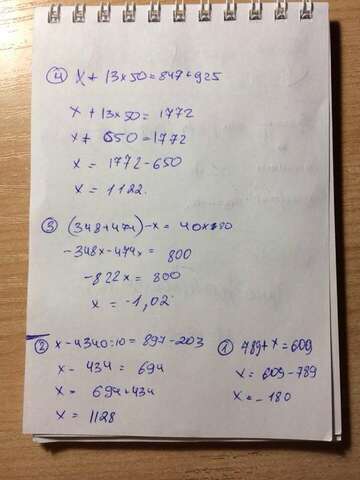 ④ x + 13x50 = 847+925
x + 13x50 = 1772
x + 650 = 1772
x = 1772 - 650
x = 1122.
③ (348+474) - x = 40x80
-348x - 474x = 800
-822x = 800
x = -1,02
② x - 4340:10 = 897 - 203
x - 434 = 694
x = 694+434
x = 1128
① 789 + x = 609
x = 609 - 789
x = - 180